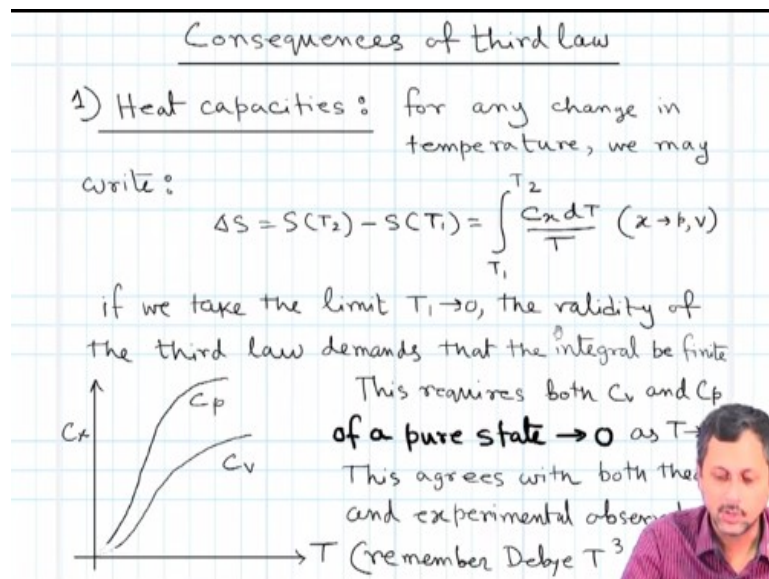 Consequences of third law
1) Heat capacities: for any change in
temperature, we may
write:
ΔS = S(T₂) - S(T₁) = ∫_{T₁}^{T₂} Cₓ dT / T (x → p, v)
if we take the limit T₁→0, the validity of
the third law demands that the integral be finite
This requires both Cv and Cp
of a pure state → 0 as T→
This agrees with both
and experimental
(remember Debye T³
Cx
Cp
Cv
T